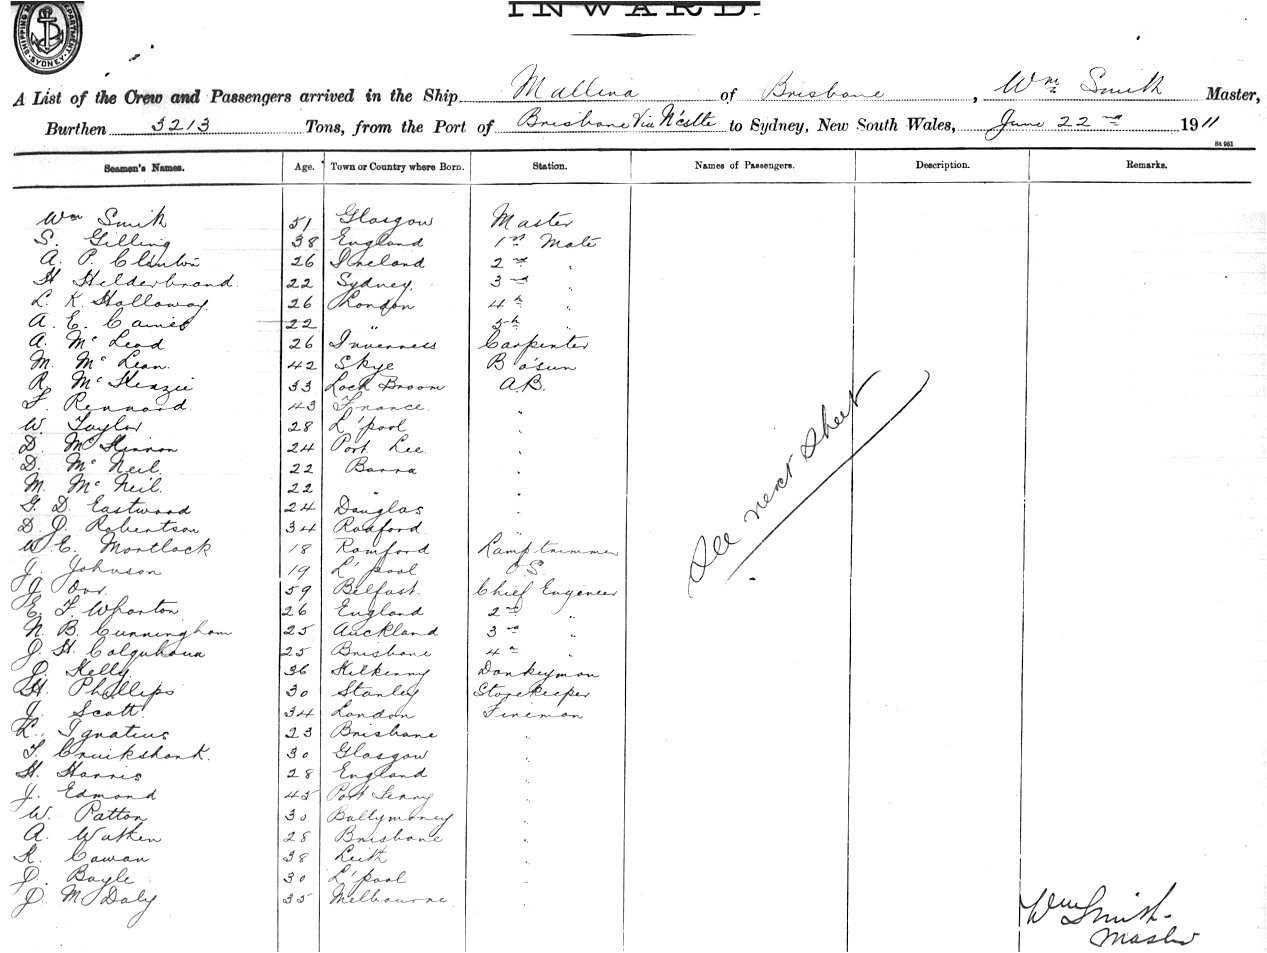 INWARD.
SHIPPING MASTER'S DEPARTMENT SYDNEY
A List of the Crew and Passengers arrived in the Ship Mallina of Brisbane, Wm Smith Master,
Burthen 3213 Tons, from the Port of Brisbane Via N'cstle to Sydney, New South Wales, June 22nd 1911
84 961
Seamen's Names. Age. Town or Country where Born. Station. Names of Passengers. Description. Remarks.
Wm Smith 51 Glasgow Master
S. Gilling 38 England 1st Mate
A. P. Clinton 26 Ireland 2nd "
H Helderbrand 22 Sydney. 3rd "
L. K. Holloway 26 London 4th "
A. E. Caines 22 " 5th "
A. McLeod 26 Inverness Carpenter
M. McLean. 42 Skye Bo'sun
R. McKenzie 33 Loch Broom A.B.
F. Rennard 43 France. "
W. Taylor 28 L'pool "
D. McKinnon 24 Port Lee "
D. McNeil 22 Barra "
M. McNeil. 22 " "
G. D. Eastwood 24 Douglas "
D. J. Robertson 34 Radford "
W. E. Mortlock 18 Romford Lamptrimmer
J. Johnson 19 L'pool O.S.
J. Orr. 59 Belfast. Chief Engineer
E. F. Wharton 26 England 2nd "
N. B. Cunningham 25 Auckland 3rd "
J. H. Colquhoun 25 Brisbane 4th "
J. Kelly 36 Kilkenny Donkeyman
H. Phillips 30 Stanley Storekeeper
J. Scott. 34 London Fireman
L. Ignatius 23 Brisbane "
T. Cruikshank. 30 Glasgow "
H. Harris 28 England "
J. Edmond 45 Port "
W. Patton 30 Ballymoney "
A. Watken 28 Brisbane "
R. Cowan 38 Leith "
J. Boyle 30 L'pool "
J. M Daly 35 Melbourne. "
See next sheet
Wm Smith
Master